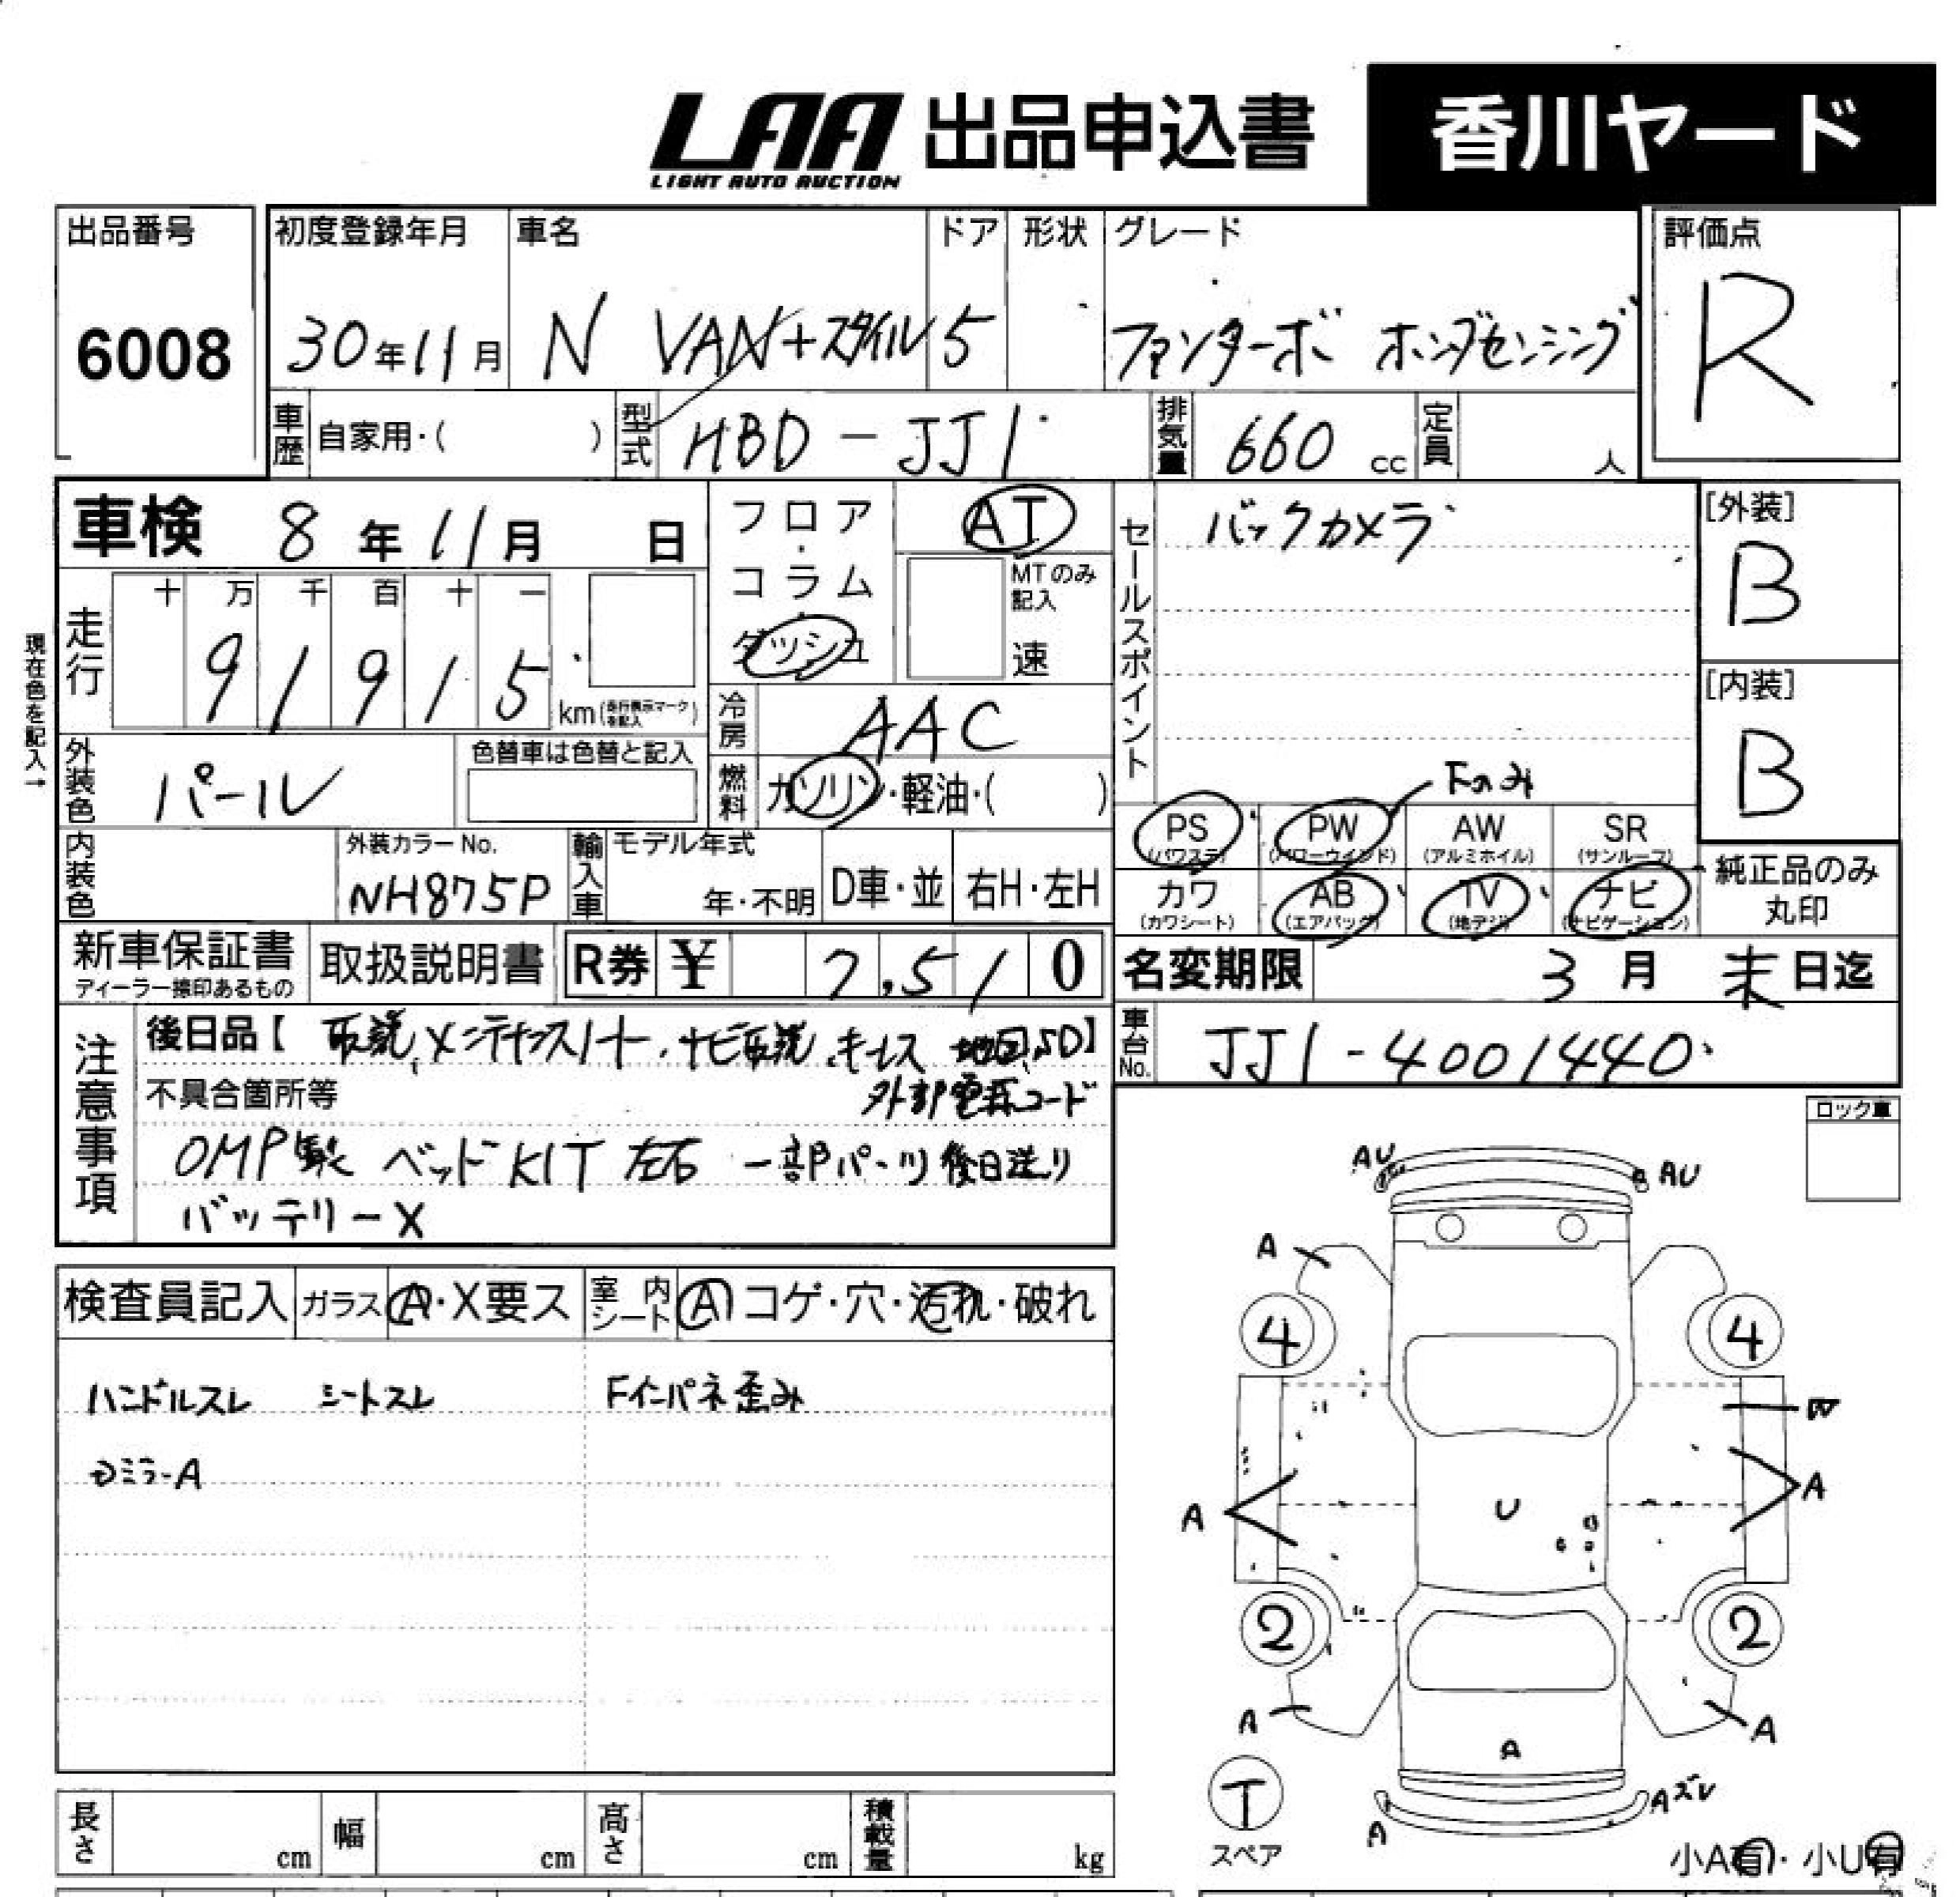 LAA 出品申込書 香川ヤード
LIGHT AUTO AUCTION
出品番号 初度登録年月 車名 ドア 形状 グレード 評価点
6008 30年11月 N VAN+スタイル 5 ファンターボ ホンダセンシング R
車歴 自家用・( ) 型式 HBD-JJ1 排気量 660 cc 定員 人
車検 8年11月 日
フロア・コラム・ダッシュ
AT
MTのみ記入
速
セールスポイント
バックカメラ
[外装]
B
[内装]
B
現在色を記入→
走行 十 万 千 百 十 一
9 1 9 1 5 km(走行表示マークを記入)
冷房 AAC
外装色 パール 色替車は色替と記入
燃料 ガソリン・軽油・( )
Fのみ
PS (パワステ) PW (パワーウィンド) AW (アルミホイル) SR (サンルーフ)
カワ (カワシート) AB (エアバッグ) TV (地デジ) ナビ (ナビゲーション)
純正品のみ
丸印
内装色 外装カラーNo. NH875P 輸入車 モデル年式 年・不明 D車・並 右H・左H
新車保証書 ディーラー捺印あるもの 取扱説明書 R券 ¥ 7,510
名変期限 3月 末日迄
車台No. JJ1-4001440
注意事項
後日品【取説、メンテナンスノート、ナビ取説、キーレス 地図SD】
不具合箇所等 外部電源コード
OMP製 ベッドKIT 左右 一部パーツ後日送り
バッテリーX
ロック車
検査員記入 ガラス A・X要ス 室内シート A コゲ・穴・汚れ・破れ
ハンドルスレ シートスレ Fインパネ歪み
ミラーA
AU AU
A
4 4
W
A U A
2 2
A A
A
T
スペア
A Aズレ
小A有・小U有
長さ cm 幅 cm 高さ cm 積載量 kg